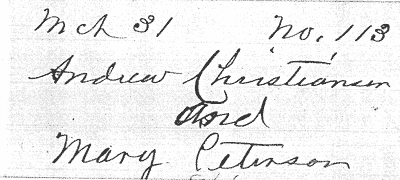 Mch 31 No. 113
Andrew Christiansen
and
Mary Peterson